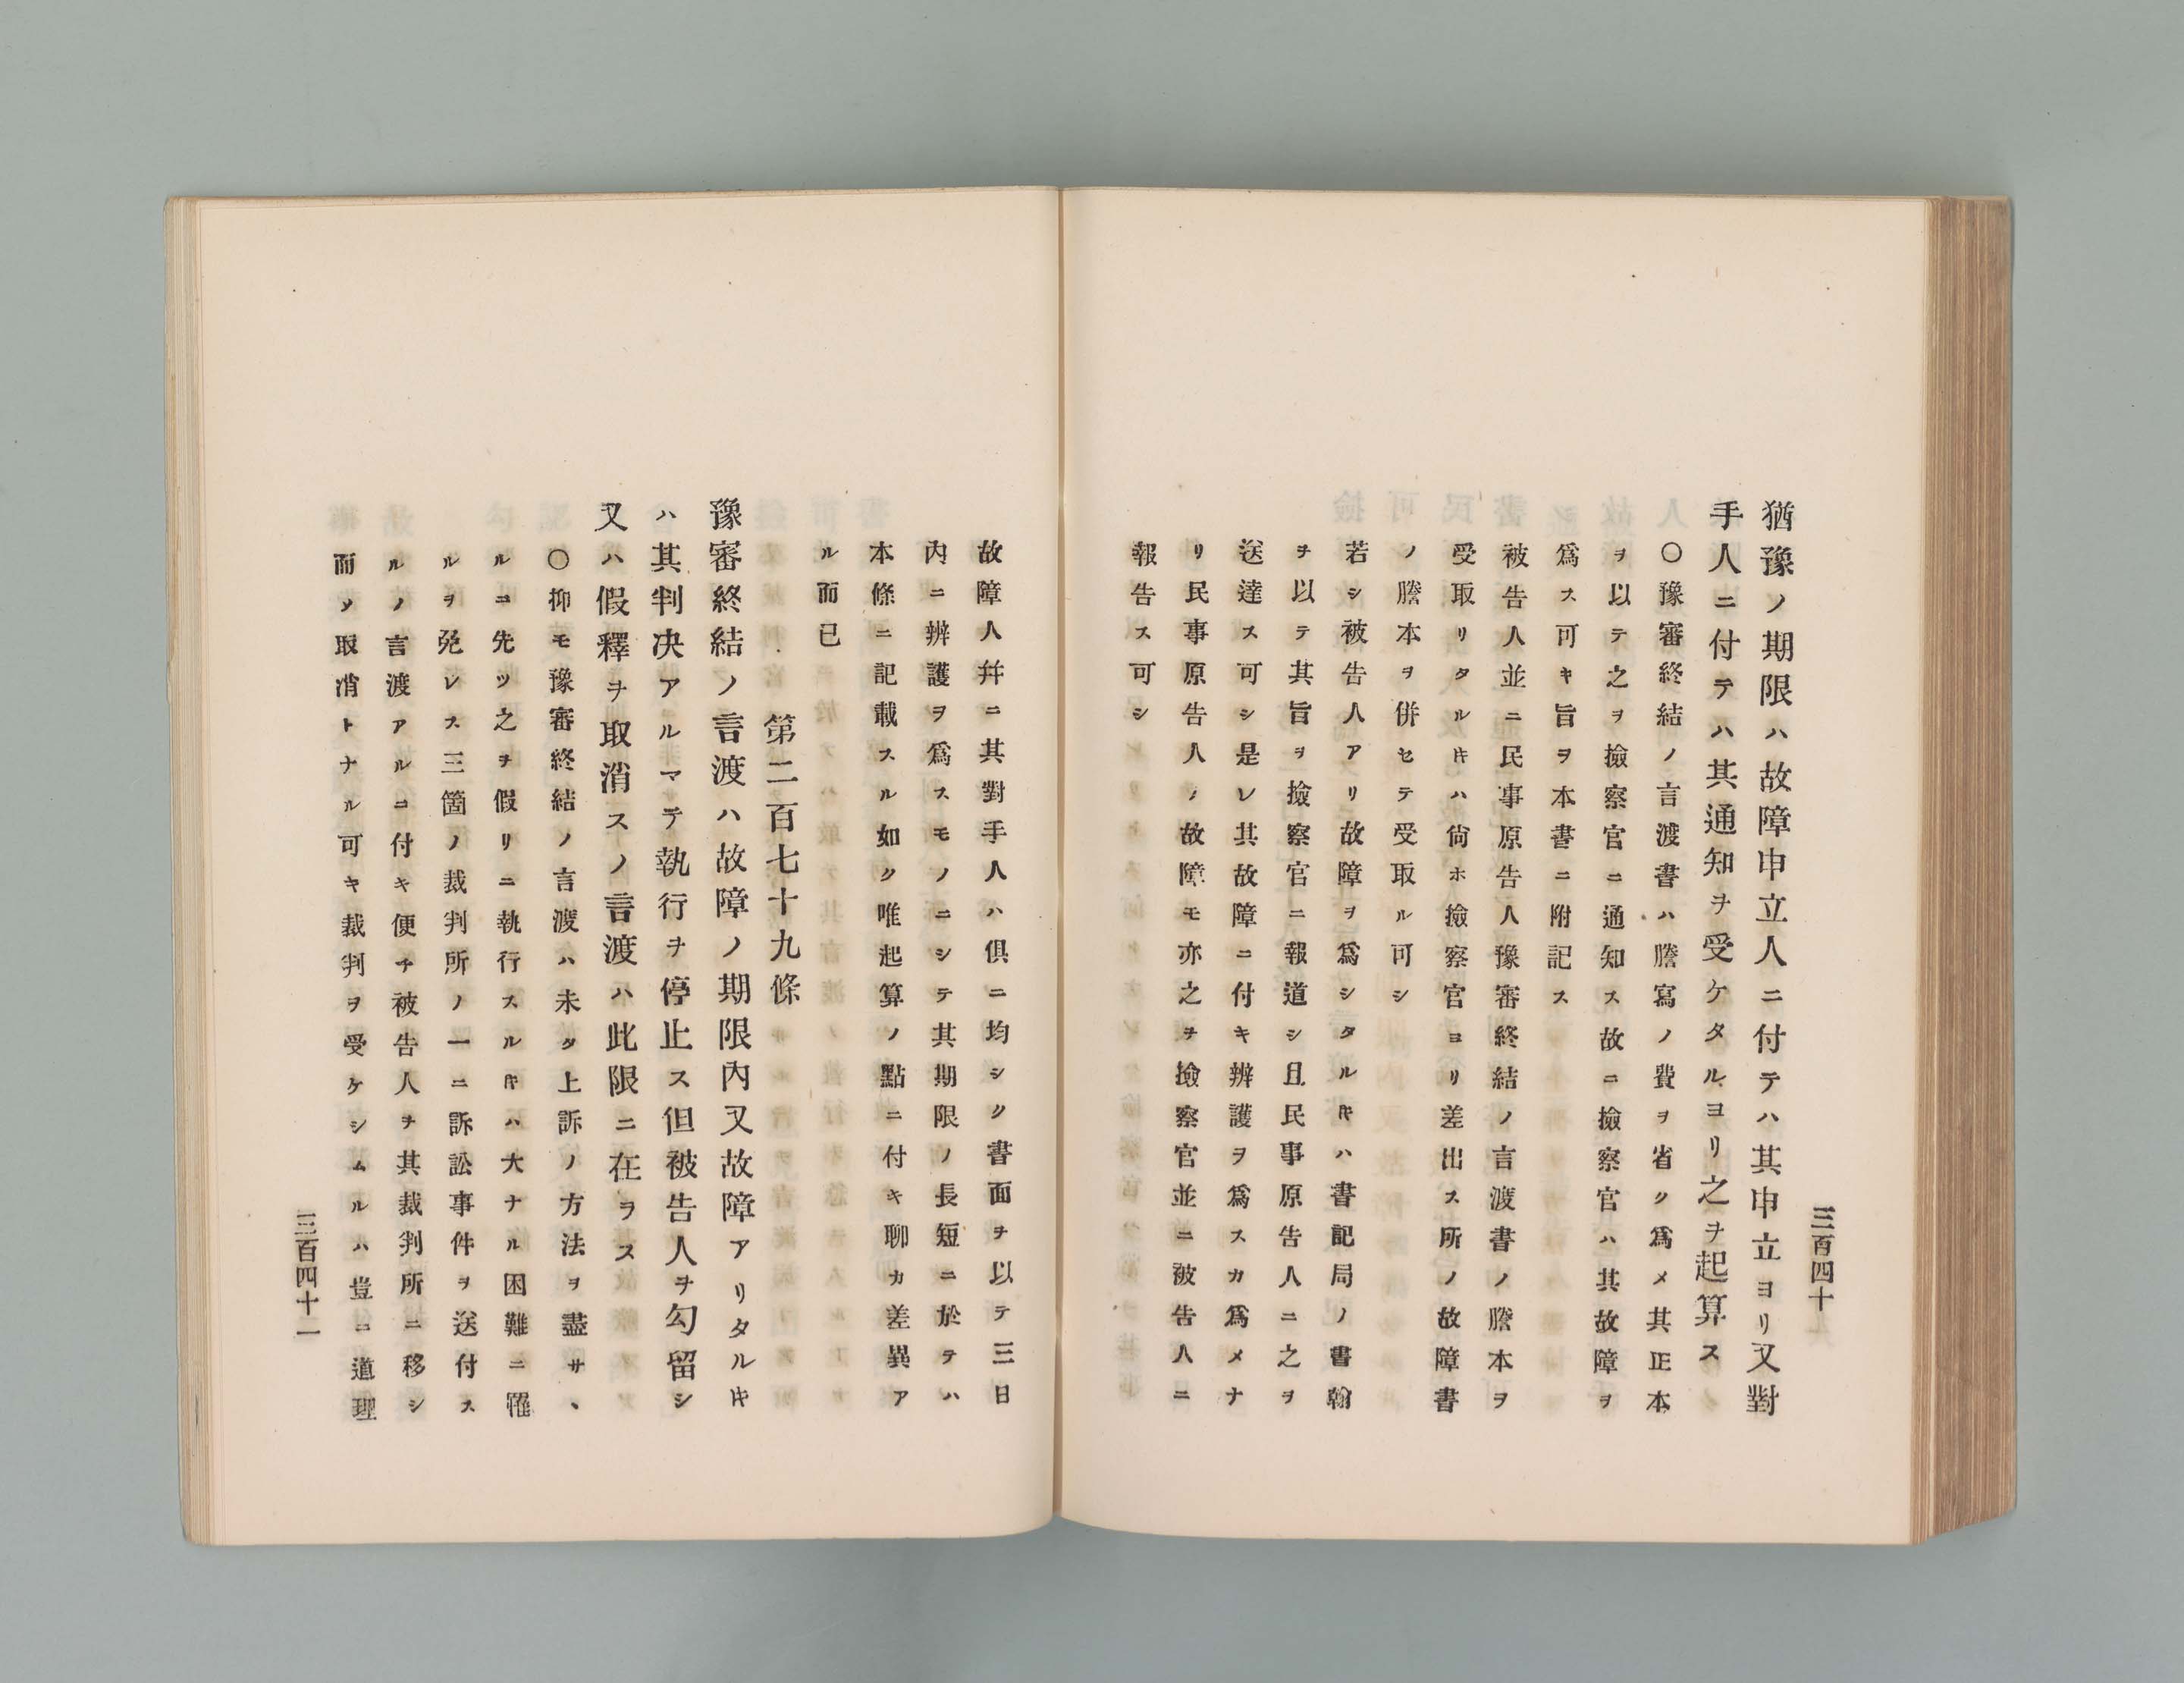 三百四十
猶豫ノ期限ハ故障申立人ニ付テハ其申立ヨリ又對
手人ニ付テハ其通知ヲ受ケタルヨリ之ヲ起算ス
〇豫審終結ノ言渡書ハ謄寫ノ費ヲ省ク爲メ其正本
ヲ以テ之ヲ撿察官ニ通知ス故ニ撿察官ハ其故障ヲ
爲ス可キ旨ヲ本書ニ附記ス
被告人並ニ民事原告人豫審終結ノ言渡書ノ謄本ヲ
受取リタルキハ尙ホ撿察官ヨリ差出ス所ノ故障書
ノ謄本ヲ併セテ受取ル可シ
若シ被告人アリ故障ヲ爲シタルキハ書記局ノ書翰
ヲ以テ其旨ヲ撿察官ニ報道シ且民事原告人ニ之ヲ
送達ス可シ是レ其故障ニ付キ辨護ヲ爲スカ爲メナ
リ民事原告人ノ故障モ亦之ヲ撿察官並ニ被告人ニ
報告ス可シ
故障人幷ニ其對手人ハ俱ニ均シク書面ヲ以テ三日
內ニ辨護ヲ爲スモノニシテ其期限ノ長短ニ於テハ
本條ニ記載スル如ク唯起算ノ點ニ付キ聊カ差異ア
ル而已
第二百七十九條
豫審終結ノ言渡ハ故障ノ期限內又故障アリタルキ
ハ其判決アルマテ執行ヲ停止ス但被告人ヲ勾留シ
又ハ假釋ヲ取消スノ言渡ハ此限ニ在ラス
〇抑モ豫審終結ノ言渡ハ未タ上訴ノ方法ヲ盡サヽ
ルニ先ツ之ヲ假リニ執行スルキハ大ナル困難ニ罹
ルヲ免レス三箇ノ裁判所ノ一ニ訴訟事件ヲ送付ス
ルノ言渡アルニ付キ便チ被告人ヲ其裁判所ニ移シ
而ノ取消トナル可キ裁判ヲ受ケシムルハ豈ニ道理
三百四十一